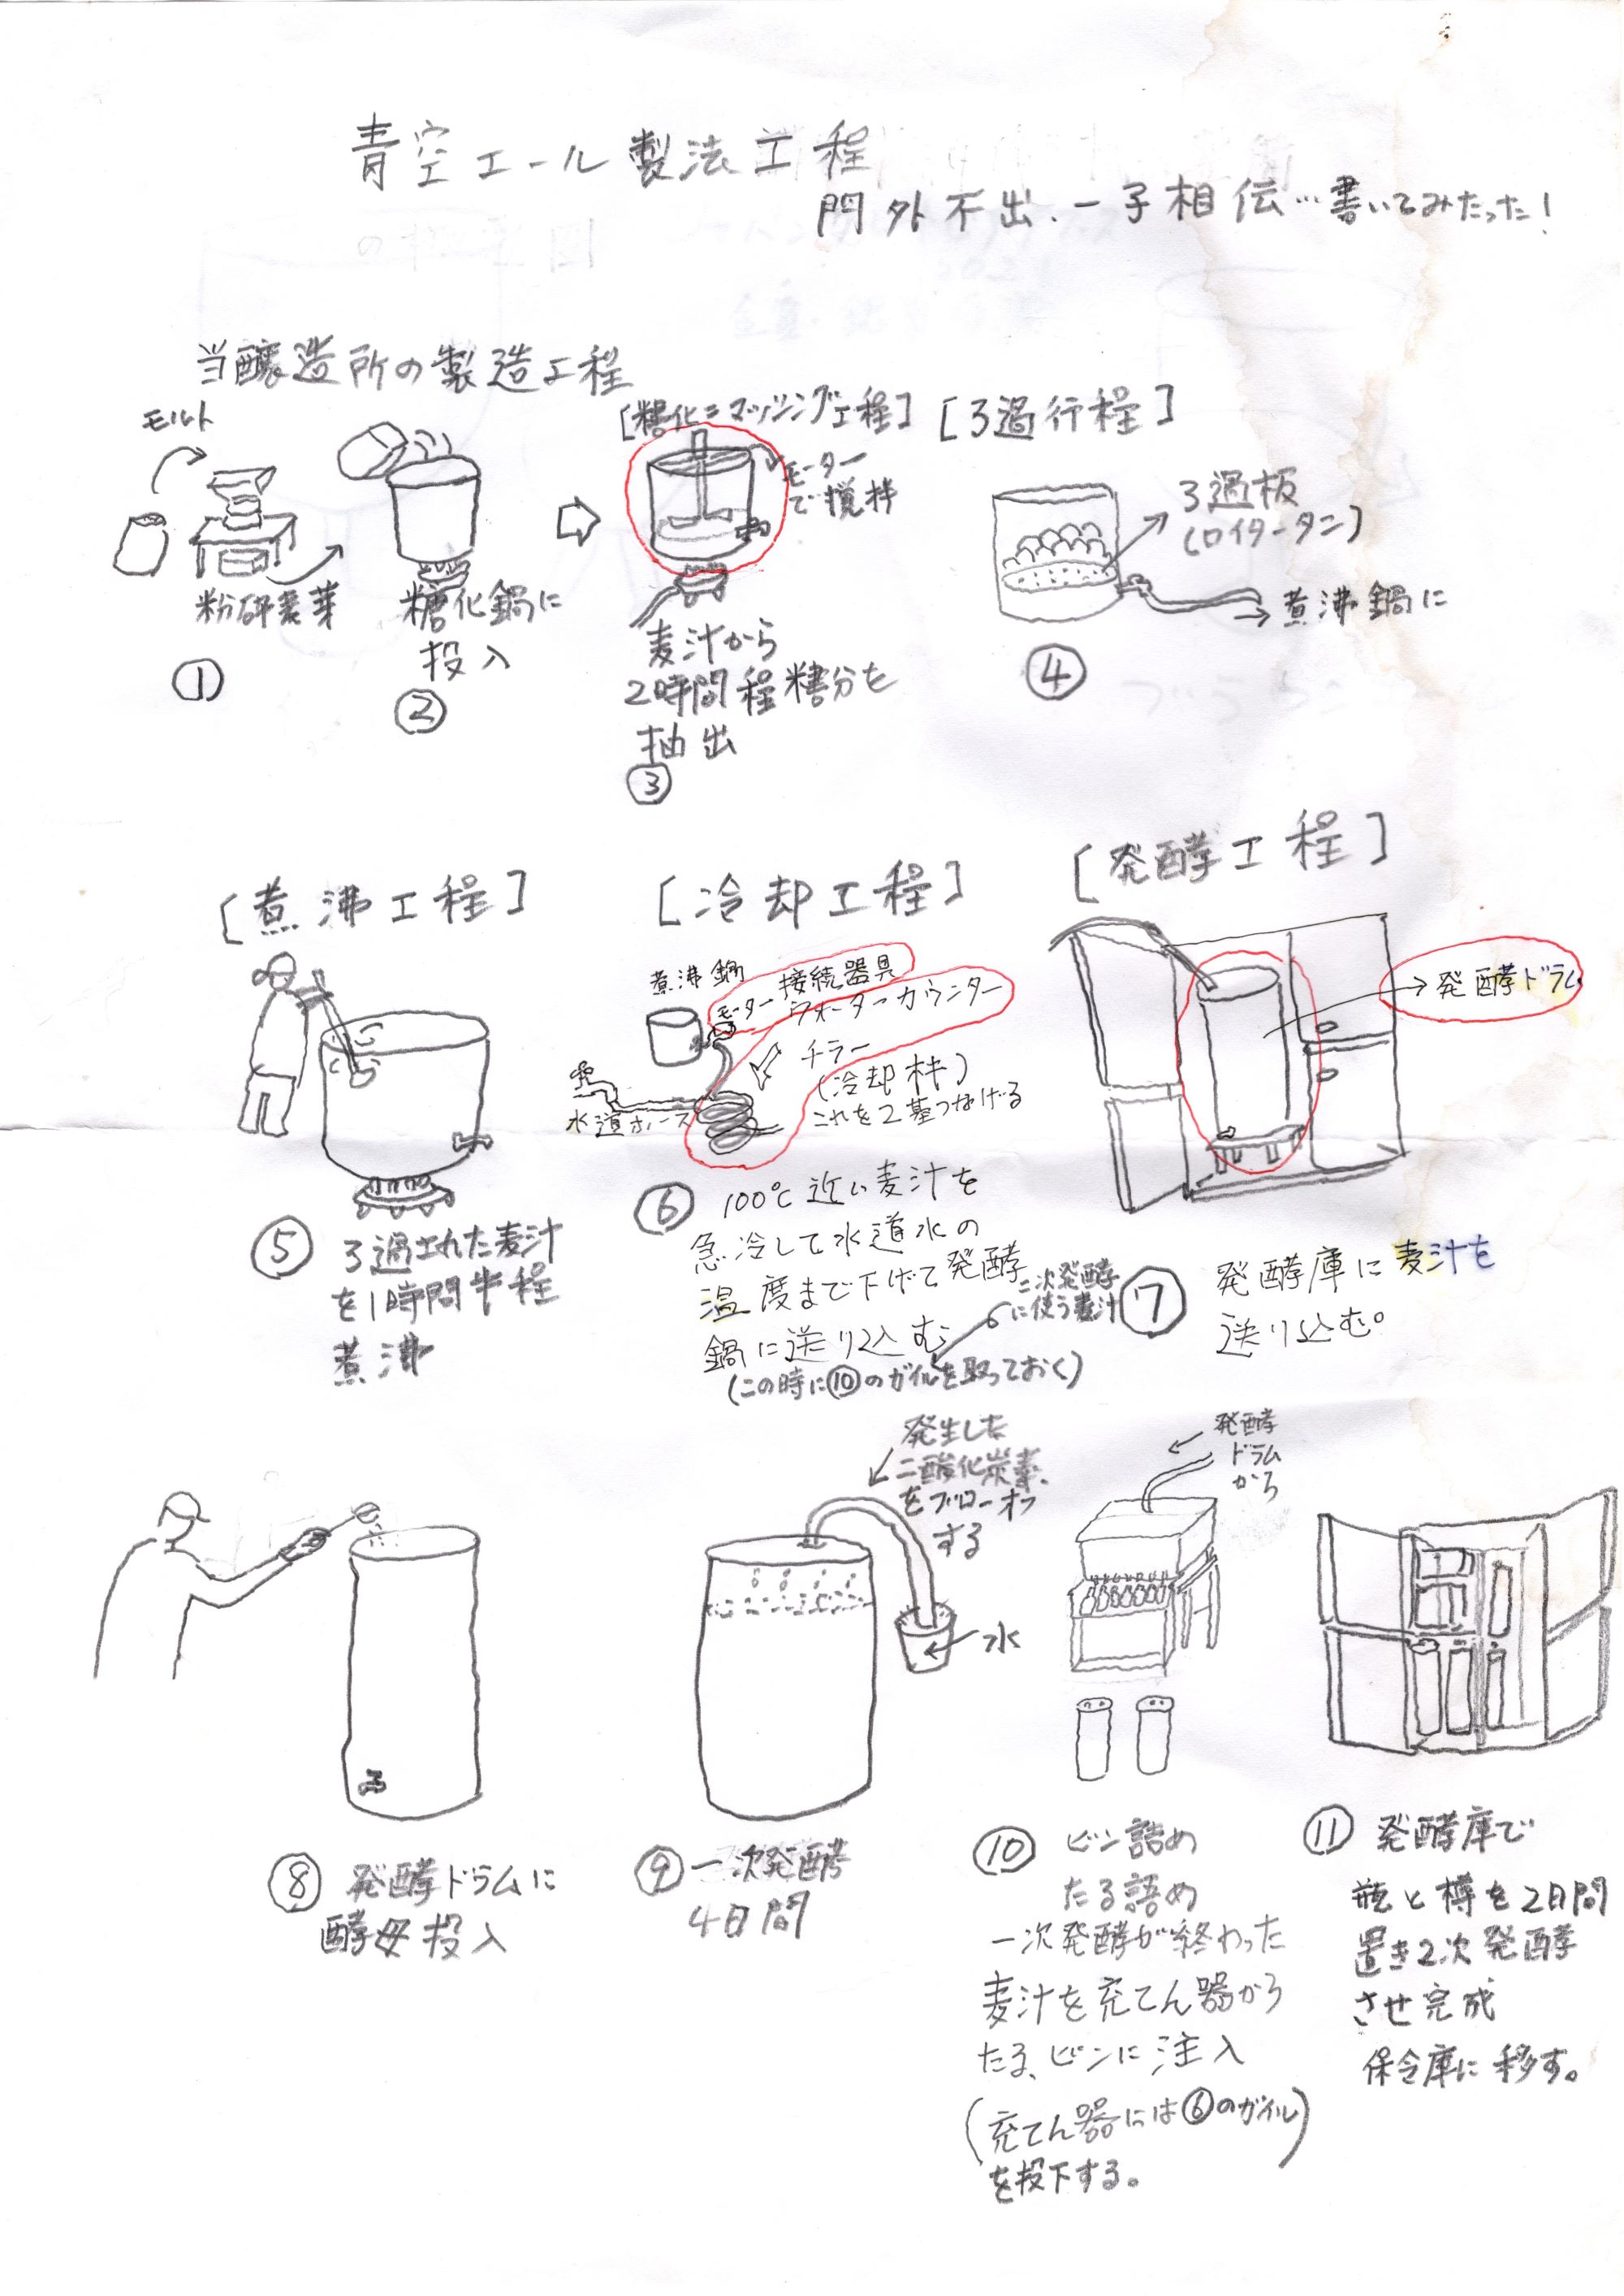 青空エール製法工程
門外不出、一子相伝…書いてみたった!
当醸造所の製造工程
モルト
粉砕麦芽
①
糖化鍋に
投入
②
[糖化=マッシング工程]
モーター
で撹拌
麦汁から
2時間程糖分を
抽出
③
[ろ過行程]
ろ過板
(ロイタータン)
煮沸鍋に
④
[煮沸工程]
⑤ ろ過された麦汁
を1時間半程
煮沸
[冷却工程]
煮沸鍋
モーター
接続器具
ウォーターカウンター
チラー
(冷却材)
これを2基つなげる
水道ホース
⑥ 100℃近い麦汁を
急冷して水道水の
温度まで下げて発酵
鍋に送り込む
二次発酵
に使う麦汁
(この時に⑩のガイルを取っておく)
[発酵工程]
発酵ドラム
⑦ 発酵庫に麦汁を
送り込む。
⑧ 発酵ドラムに
酵母投入
発生した
二酸化炭素
をブローオフ
する
水
⑨ 一次発酵
4日間
発酵
ドラム
から
⑩ ビン詰め
たる詰め
一次発酵が終わった
麦汁を充てん器から
たる、ビンに注入
(充てん器には⑥のガイル)
を投下する。
⑪ 発酵庫で
瓶と樽を2日間
置き2次発酵
させ完成
保冷庫に移す。